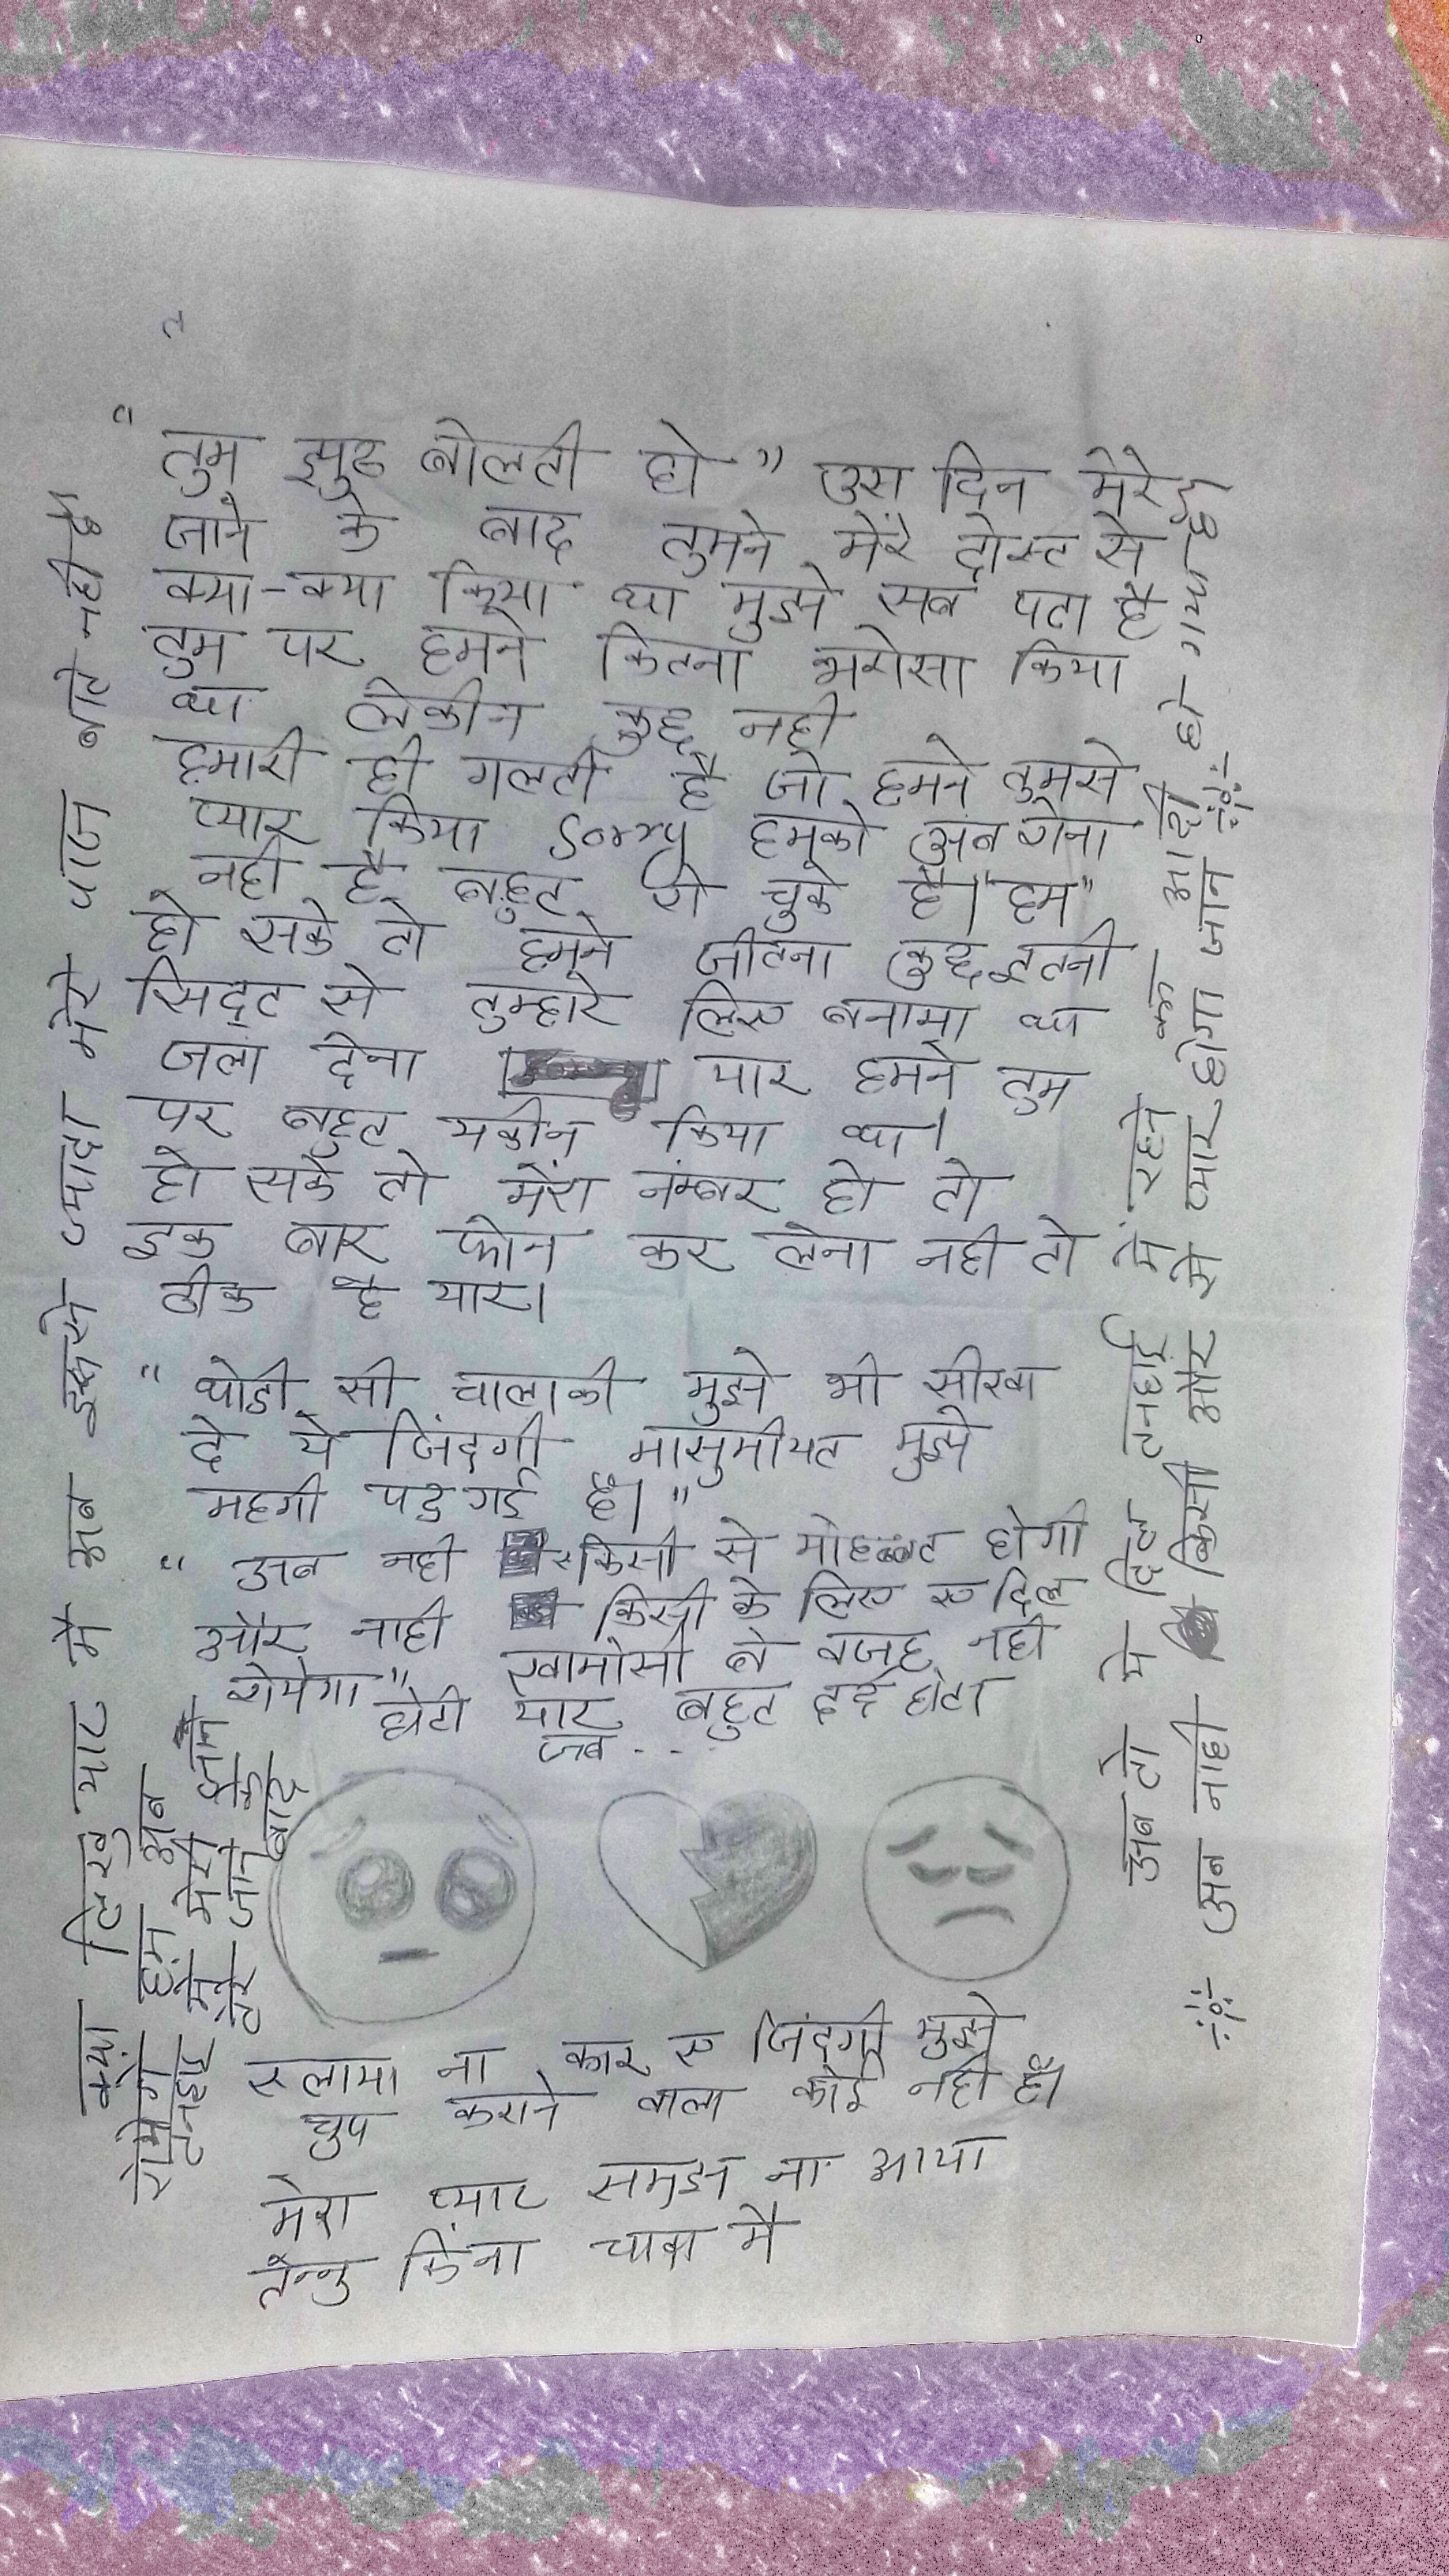 "तुम झुठ बोलती हो" उस दिन मेरे
जाने के बाद तुमने मेरे दोस्ट से
क्या-क्या किया था मुझे सब पता है
तुम पर हमने कितना भरोसा किया
था लेकीन कुछ नही
हमारी ही गलती है जो हमने तुमसे
प्यार किया Sorry हमको अब रोना
नही है बहुत रो चुके है। "हम"
हो सके तो हमने जीतना कुछ इतनी
सिद्दट से तुम्हारे लिए बनाया था
जला देना यार हमने तुम
पर बहुत यकीन किया था।
हो सके तो मेरा नंम्बर हो तो
इक बार फोन कर लेना नही तो
ठीक है यार।
"थोडी सी चालाकी मुझे भी सीखा
दे ये जिंदगी मासुमीयत मुझे
महगी पड़ गई है।"
"अब नही किसी से मोहब्बत होगी
और नाही किसी के लिए ए दिल
रोयेगा" खामोसी बे वजह नही
होती यार बहुत दर्द होता
जब...
रुलाया ना कार ए जिंदगी मुझे
चुप कराने वाला कोई नही है।
मेरा प्यार समझ ना आया
तेन्नु किंना चावा मै
क्या लिखु यार मै अब इससे ज्यादा मेरे पास बाते नही है
रोयेगे हम अब
तनहाई मे मेरे
जाने
बाद
अब तो ये दिल तनहाई में रहने का आदी हो गया है
अब नाही किसी और से प्यार होगा जान